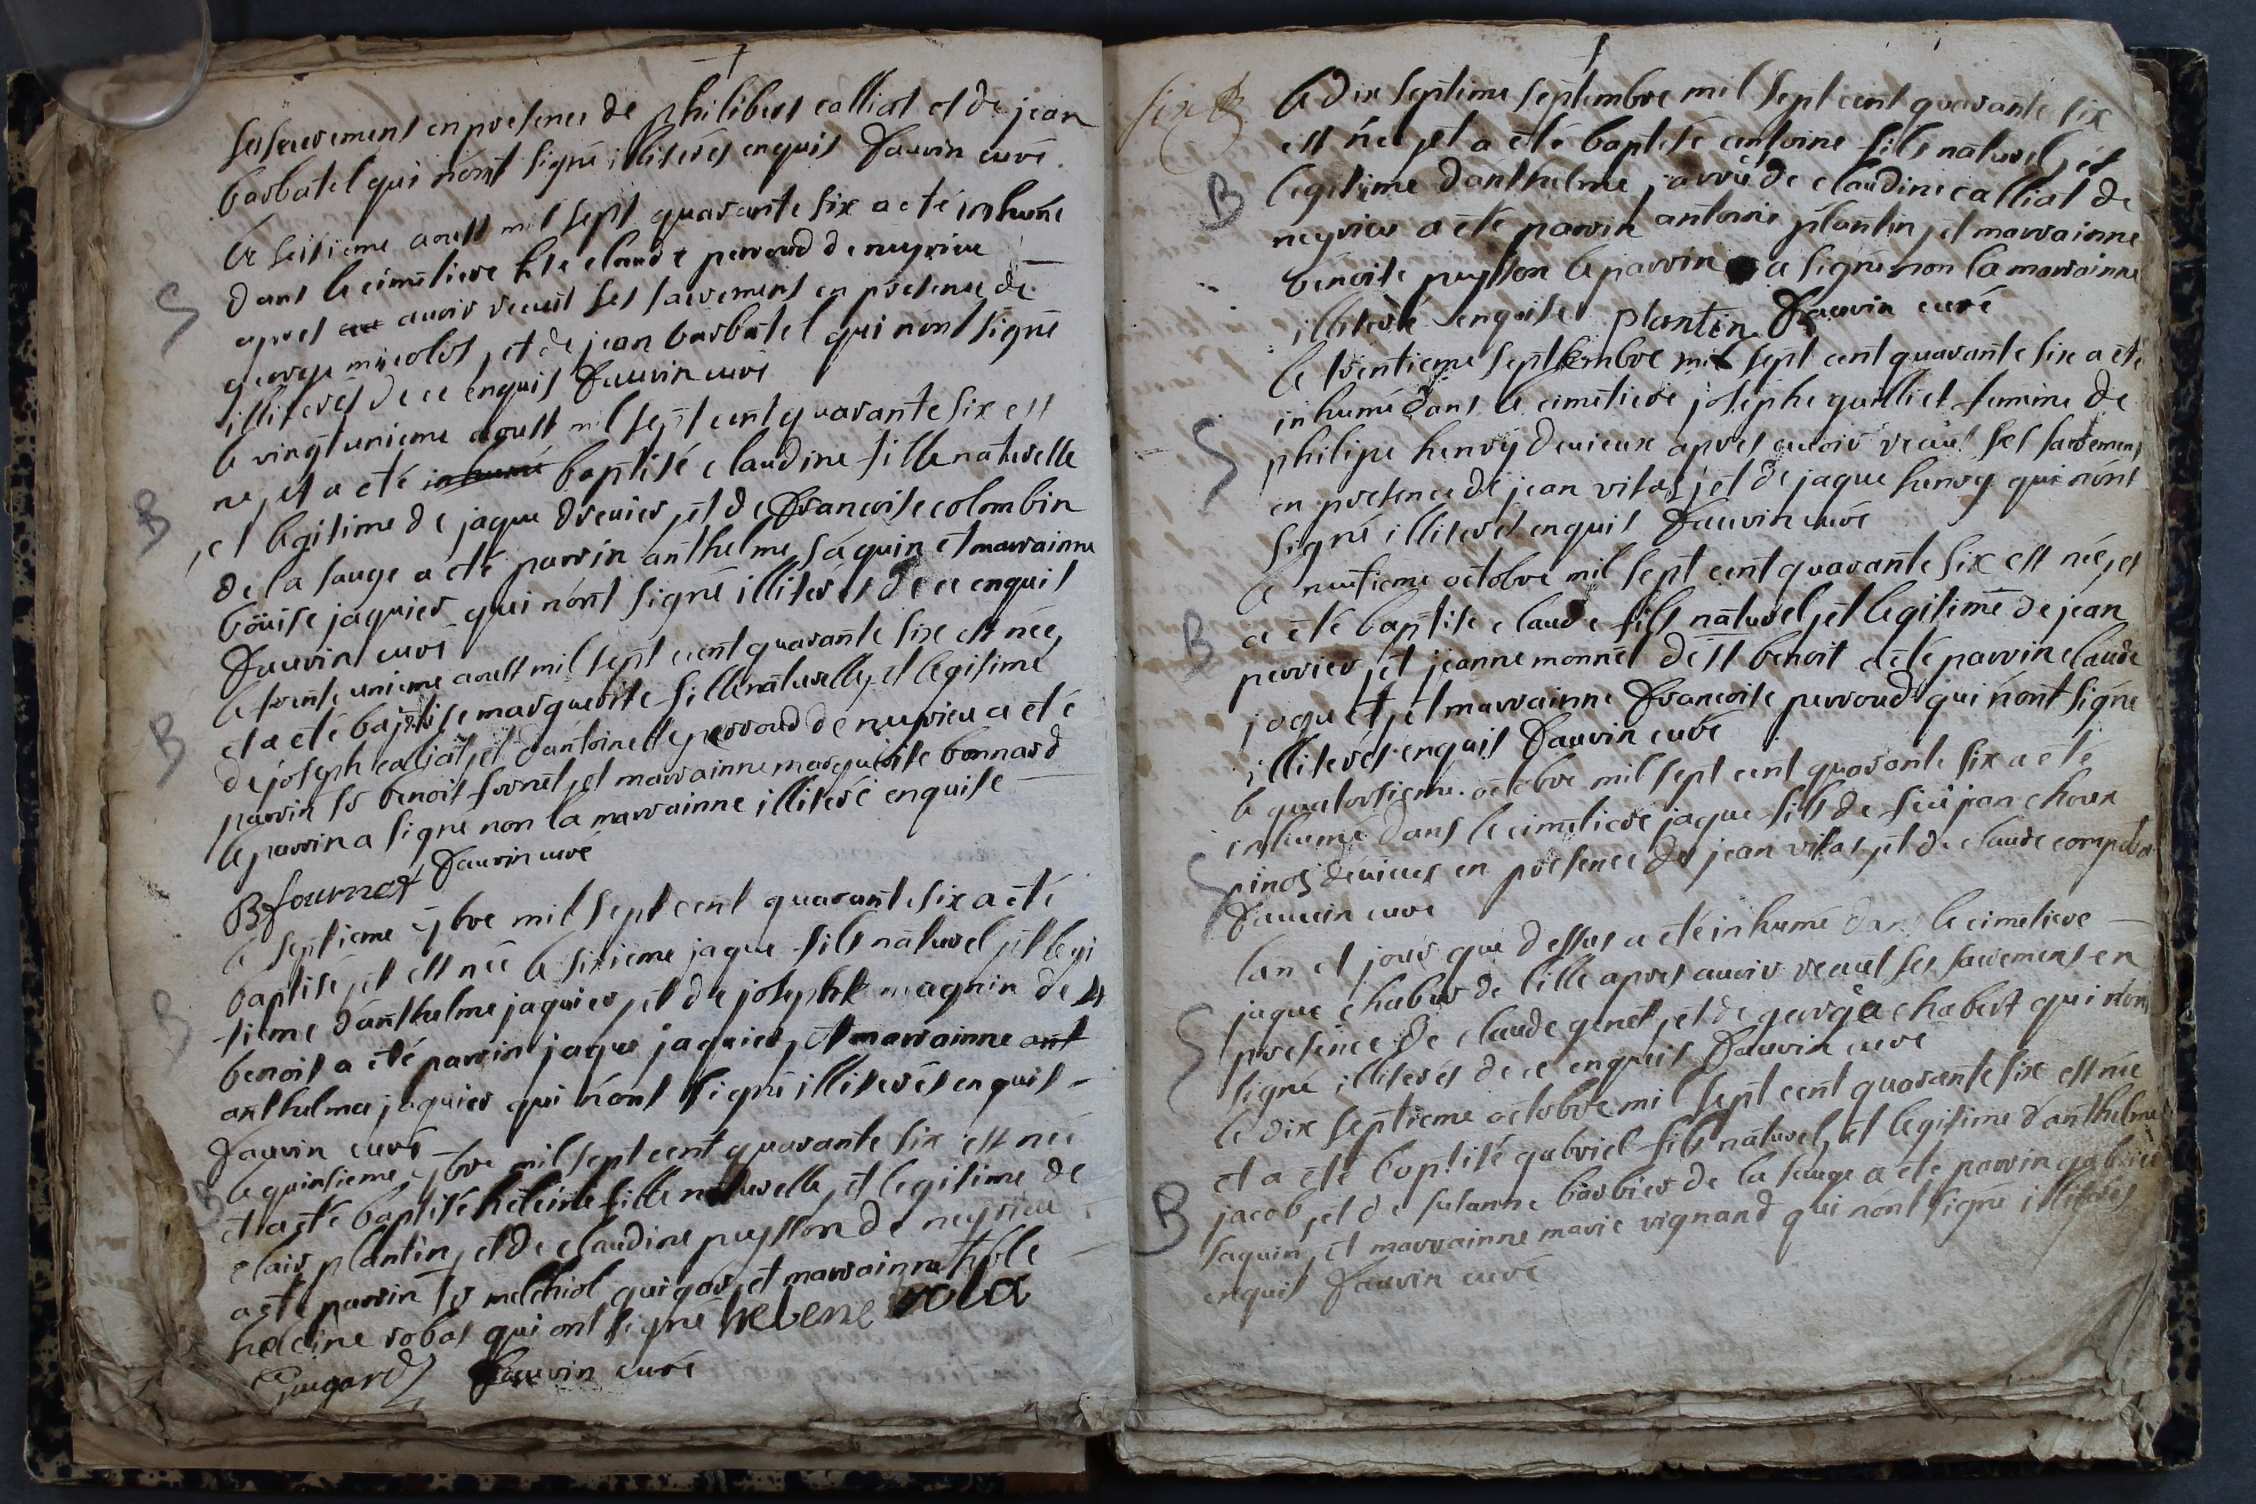 ses sacrements en presence de philibert calliat et de jean
barbatel qui n'ont signé illiterés enquis Fauvin curé
le seisieme aoust mil sept quarante six a eté inhumé
S
dans le cimetiere claude perroud de neyrieu
apres avoir recuut ses sacrements en presence de
george micolos, et de jean barbatel qui nont signé
illiterés de ce enquis Fauvin curé
le vingt unieme aoust mil sept cent quarante six est
B
ne, et a eté inhumé baptisé claudine fille naturelle
et legitime de jaque drevier, et de francoise colombin
de la sauge a eté parrin anthelme saquin et marrainne
louise jaquier qui n'ont signé illiterés de ce enquis
Fauvin curé
le trente unieme aoust mil sept cent quarante six est née,
B
et a eté baptise marguerite fille naturelle, et legitime
de joseph calliat, et d'antoinette perroud de neyrieu a eté
parrin sr benoit fornet, et marrainne marguerite bonnard
le parrin a signé non la marrainne illiteré enquise
B fournet Fauvin curé
le septieme 7bre mil sept cent quarante six a eté
B
baptisé, et est née le sixieme jaque fils naturel, et legi
time d'anthelme jaquier, et de josephe magnin de st
benoit a eté parrin jaque jaquier, et marrainne ant
anthelma jaquier qui n'ont signé illiterés enquis
Fauvin curé
B
le quinsieme 7bre mil sept cent quarante six est née
et a eté baptisé heleine fille naturelle, et legitime de
clair plantin, et de claudine puysson de neyrieu
a eté parrin sr melchiol guigar, et marrainne
heleine robas qui ont signé helene rola
Guigard Fauvin curé
six
le dix septime septembre mil sept cent quarante six
est né, et a eté baptisé antoine fils naturel, et
B
legitime d'anthelme de claudine calliat de
neyrieu a eté parrin antoine plantin, et marrainne
benoite puysson le parrin a signé non la marrainne
illiteré enquise plantin Fauvin curé
le trentieme septembre mil sept cent quarante six a eté
inhumé dans le cimetiere josephe guilliet femme de
S
philipe henry devieux apres avoir recuut ses sacremens
en presence de jean vitas, et de jaque henry qui n'ont
signé illiterés enquis Fauvin curé
le neufieme octobre mil sept cent quarante six est née, et
B
a eté baptise claude fils naturel, et legitime de jean
perrier, et jeanne monnet de st benoit a eté parrin claude
jaquet, et marrainne francoise perroud qui n'ont signé
illiterés enquis Fauvin curé
le quatorsieme octobre mil sept cent quarante six a eté
inhumé dans le cimetiere jaque fils de feu jean choux
S
pinos devieux en presence de jean vitas, et de claude
Fauvin curé
lan et jour que dessus a eté inhumé dans le cimetiere
jaque chaber de lille apres avoir recuut ses sacremens en
S
presence de claude genet, et de george chabert qui n'ont
signé illiterés de ce enquis Fauvin curé
le dix septieme octobre mil sept cent quarante six est née
et a eté baptisé gabriel fils naturel, et legitime d'anthelme
B
jacob, et de susanne barbier de la sauge a eté parrin gabriel
saquin, et marrainne marie vignand qui n'ont signé illiterés
enquis Fauvin curé